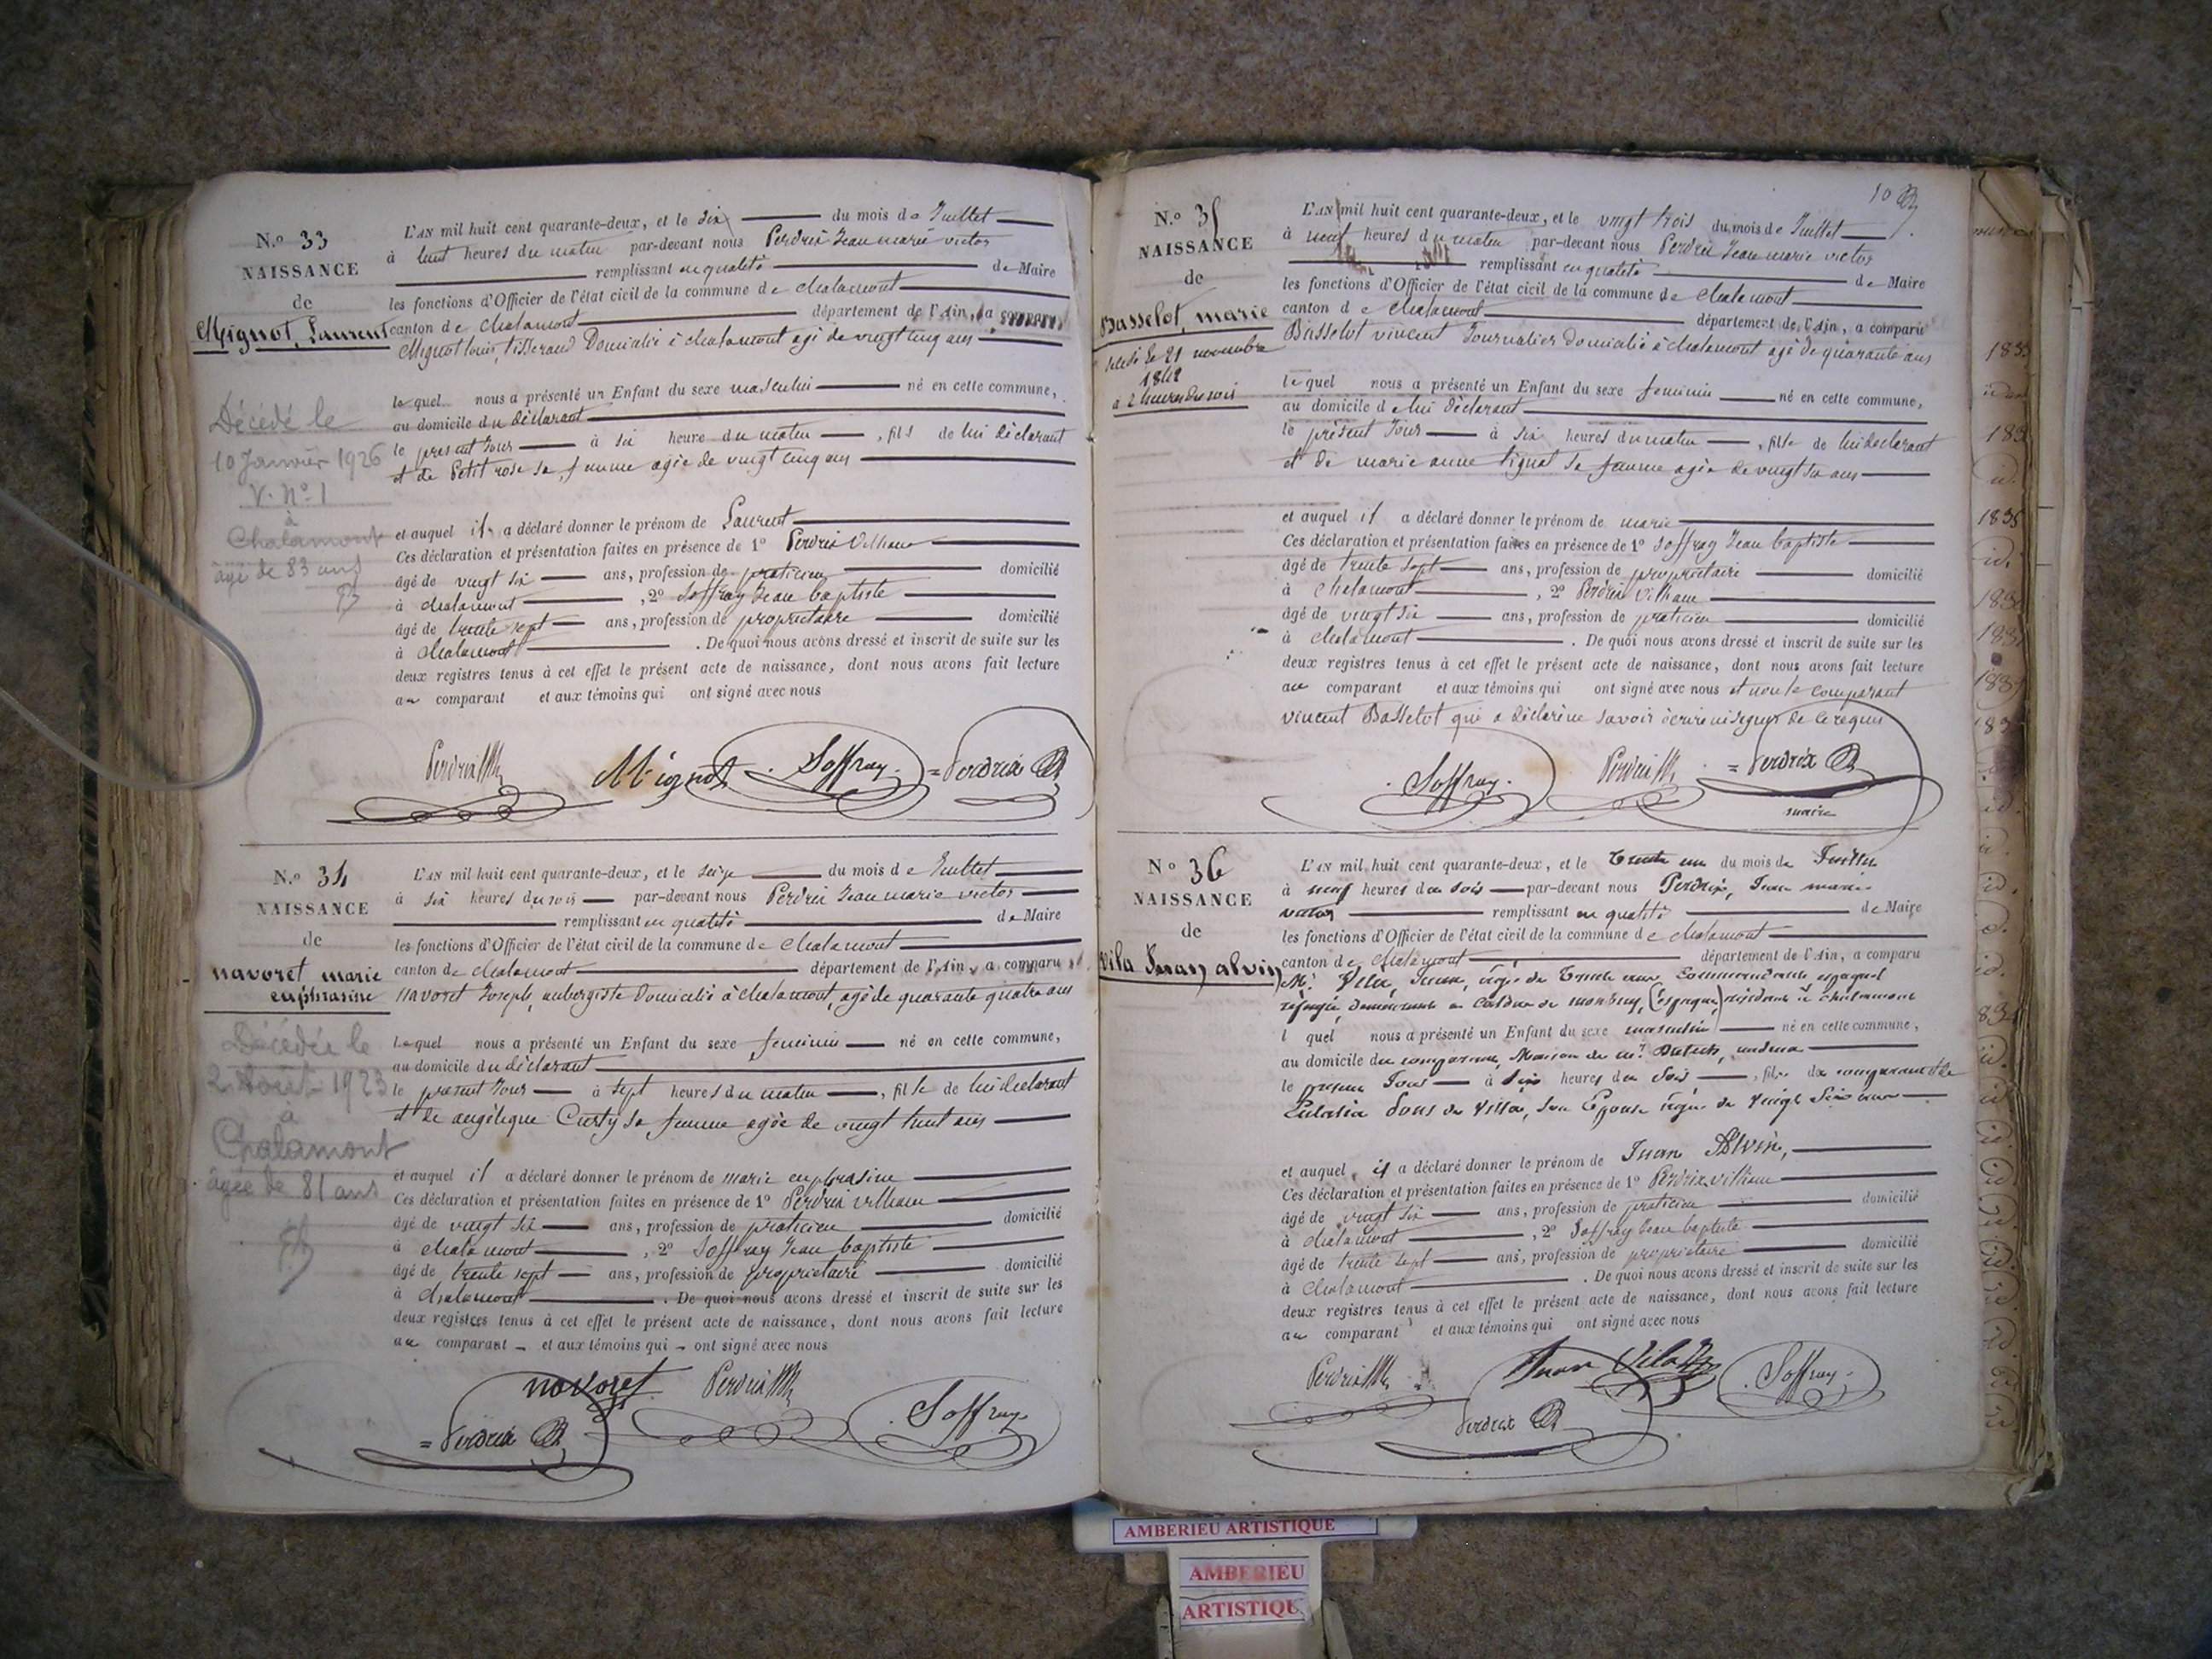 N.º 33
NAISSANCE
de
Mignot, Laurent
Décédé le
10 Janvier 1926
V. Nº 1
à
Chalamont
âgé de 83 ans
L'AN mil huit cent quarante-deux, et le six du mois de Juillet
à huit heures du matin par-devant nous Perdrix Jean marie victor
remplissant en qualité de Maire
les fonctions d'Officier de l'état civil de la commune de chalamont
canton de chalamont département de l'Ain, a comparu
Mignot louis, tisserand Domicilié à chalamont agé de vingt cinq ans
lequel nous a présenté un Enfant du sexe masculin né en cette commune,
au domicile du déclarant
le present jour à six heure du matin, fils de lui déclarant
et de Petit rose sa femme agée de vingt cinq ans
et auquel il a déclaré donner le prénom de Laurent
Ces déclaration et présentation faites en présence de 1º Perdrix
âgé de vingt six ans, profession de praticien domicilié
à chalamont, 2º Soffray Jean baptiste
âgé de trente sept ans, profession de propriétaire domicilié
à chalamont. De quoi nous avons dressé et inscrit de suite sur les
deux registres tenus à cet effet le présent acte de naissance, dont nous avons fait lecture
au comparant et aux témoins qui ont signé avec nous
Perdrix Mignot Soffray Perdrix
N.º 34
NAISSANCE
de
navoret marie
euphrasine
Décédée le
2 Août 1923
à
Chalamont
âgée de 81 ans
L'AN mil huit cent quarante-deux, et le seize du mois de Juillet
à six heures du soir par-devant nous Perdrix Jean marie victor
remplissant en qualité de Maire
les fonctions d'Officier de l'état civil de la commune de chalamont
canton de chalamont département de l'Ain, a comparu
navoret Joseph, aubergiste Domicilié à chalamont, agé de quarante quatre ans
lequel nous a présenté un Enfant du sexe feminin né en cette commune,
au domicile du déclarant
le present jour à sept heures du matin, fille de lui declarant
et de angélique Curty sa femme agée de vingt huit ans
et auquel il a déclaré donner le prénom de marie euphrasine
Ces déclaration et présentation faites en présence de 1º Perdrix
âgé de vingt six ans, profession de praticien domicilié
à chalamont, 2º Soffray Jean baptiste
âgé de trente sept ans, profession de propriétaire domicilié
à chalamont. De quoi nous avons dressé et inscrit de suite sur les
deux registres tenus à cet effet le présent acte de naissance, dont nous avons fait lecture
au comparant et aux témoins qui ont signé avec nous
navoret Perdrix Soffray
Perdrix
10
N.º 35
NAISSANCE
de
Basselot, marie
le 21 novembre
1842
à 2 heures du soir
L'AN mil huit cent quarante-deux, et le vingt trois du mois de Juillet
à neuf heures du matin par-devant nous Perdrix Jean marie victor
remplissant en qualité de Maire
les fonctions d'Officier de l'état civil de la commune de chalamont
canton de chalamont département de l'Ain, a comparu
Basselot vincent Journalier domicilié à chalamont agé de quarante ans
lequel nous a présenté un Enfant du sexe feminin né en cette commune,
au domicile de lui déclarant
le présent jour à six heures du matin, fille de lui declarant
et de marie anne sa femme agée de vingt six ans
et auquel il a déclaré donner le prénom de marie
Ces déclaration et présentation faites en présence de 1º Soffray Jean baptiste
âgé de trente sept ans, profession de propriétaire domicilié
à chalamont, 2º Perdrix
âgé de vingt six ans, profession de praticien domicilié
à chalamont. De quoi nous avons dressé et inscrit de suite sur les
deux registres tenus à cet effet le présent acte de naissance, dont nous avons fait lecture
au comparant et aux témoins qui ont signé avec nous et non le comparant
vincent Basselot qui a déclaré ne savoir écrire ni signer de ce requis
Soffray Perdrix Perdrix
maire
Nº 36
NAISSANCE
de
Vila Juan alvin
L'AN mil huit cent quarante-deux, et le trente un du mois de Juillet
à neuf heures du soir par-devant nous Perdrix, Jean marie
victor remplissant en qualité de Maire
les fonctions d'Officier de l'état civil de la commune de chalamont
canton de chalamont département de l'Ain, a comparu
Mr. Vila, Juan, âgé de trente ans, Commandant espagnol
réfugié, demeurant a Caldas de monbuy, (espagne) résidant à chalamont
l quel nous a présenté un Enfant du sexe masculin né en cette commune,
au domicile du comparant, Maison de mr.
le présent Jour à six heures du soir, fils du comparant et de
de Villa, son Epouse âgée de vingt six ans
et auquel il a déclaré donner le prénom de Juan Alvin,
Ces déclaration et présentation faites en présence de 1º Perdrix
âgé de vingt six ans, profession de praticien domicilié
à chalamont, 2º Soffray Jean baptiste
âgé de trente sept ans, profession de propriétaire domicilié
à chalamont. De quoi nous avons dressé et inscrit de suite sur les
deux registres tenus à cet effet le présent acte de naissance, dont nous avons fait lecture
au comparant et aux témoins qui ont signé avec nous
Perdrix Juan Vila Soffray
Perdrix
AMBERIEU ARTISTIQUE
AMBERIEU
ARTISTIQUE